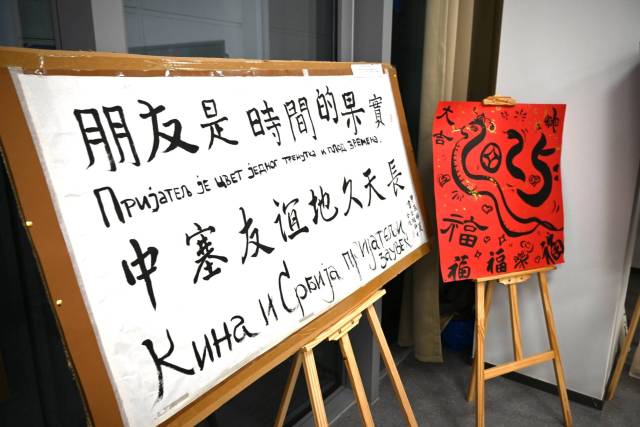 朋友是時間的果實
Пријатељ је цвет једног тренутка и плод времена.
中塞友谊地久天長
Кина и Србија пријатељи
заувек
大吉
2025
福
福 福 福